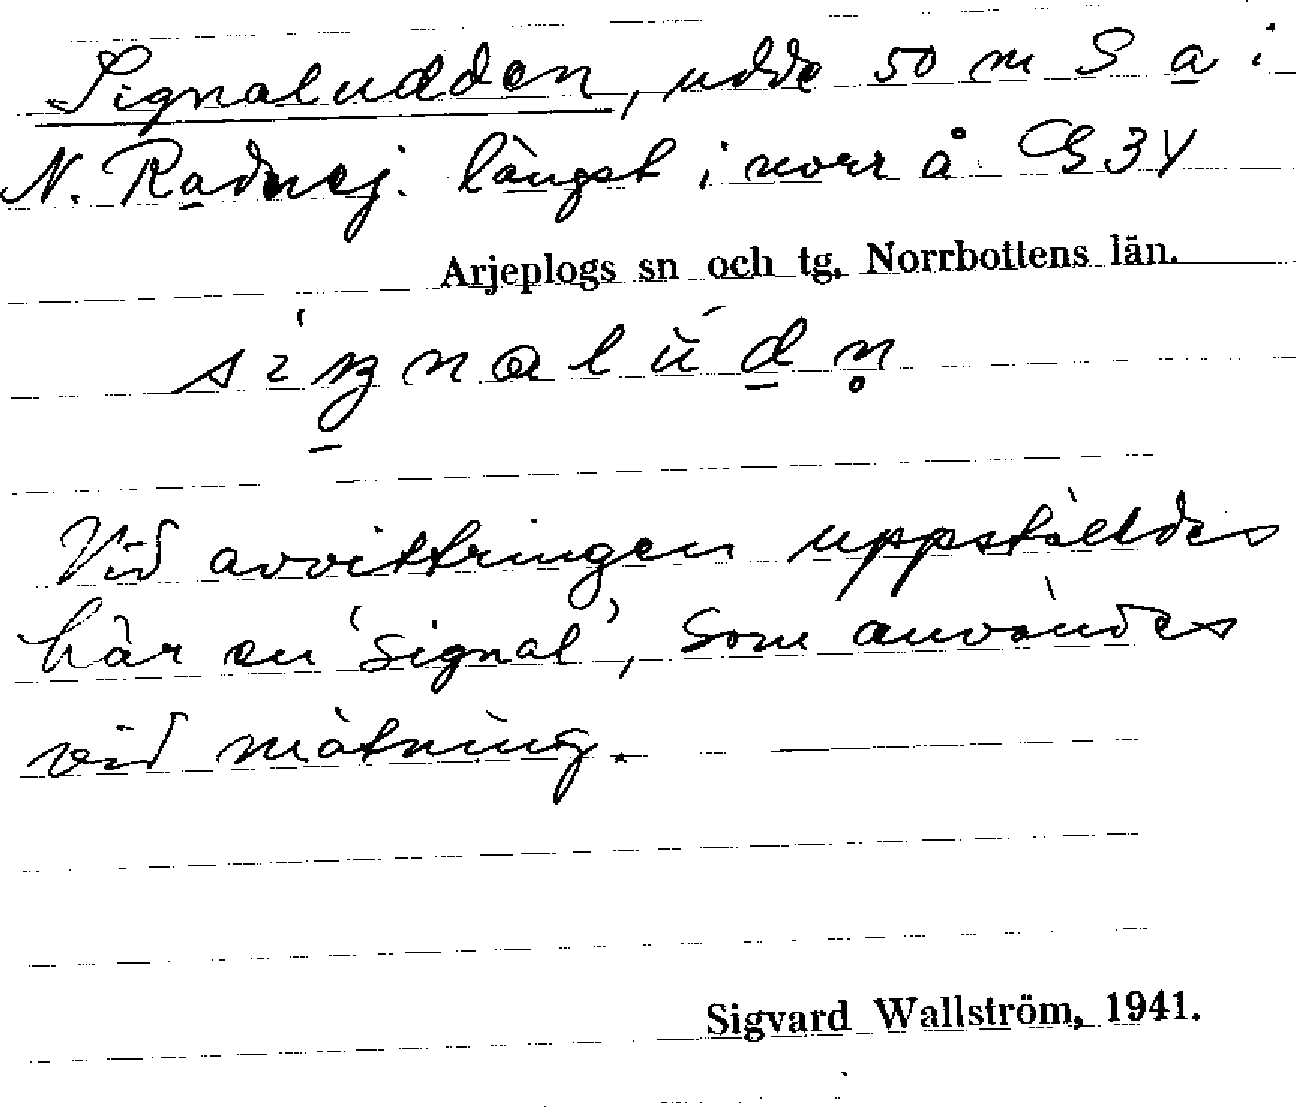 Signaludden, udde 50 m S a i
N. Radnej. längst i norr å G34
Arjeplogs sn och tg. Norrbottens län.
Vid avvittringen uppställdes
här en 'signal', som användes
vid mätning.
Sigvard Wallström, 1941.